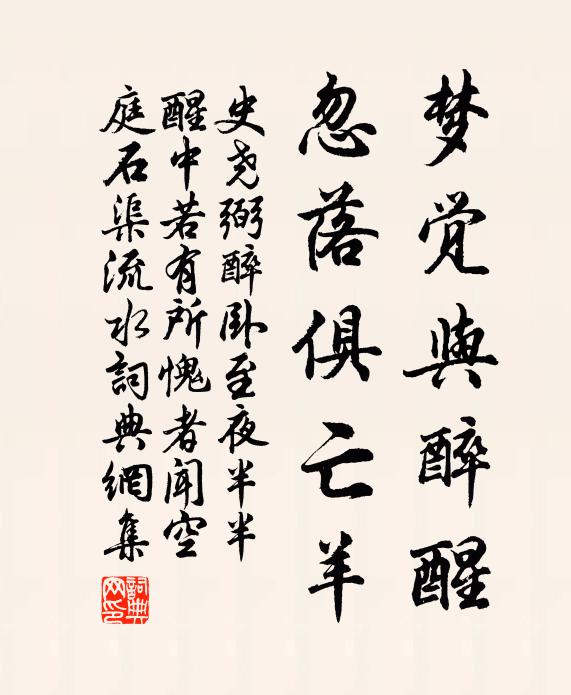 梦觉與醉醒
忽落俱亡羊
史尧弼醉卧至夜半半
醒中若有所愧者闻空
庭石渠流水詞典網集
詞典
网印